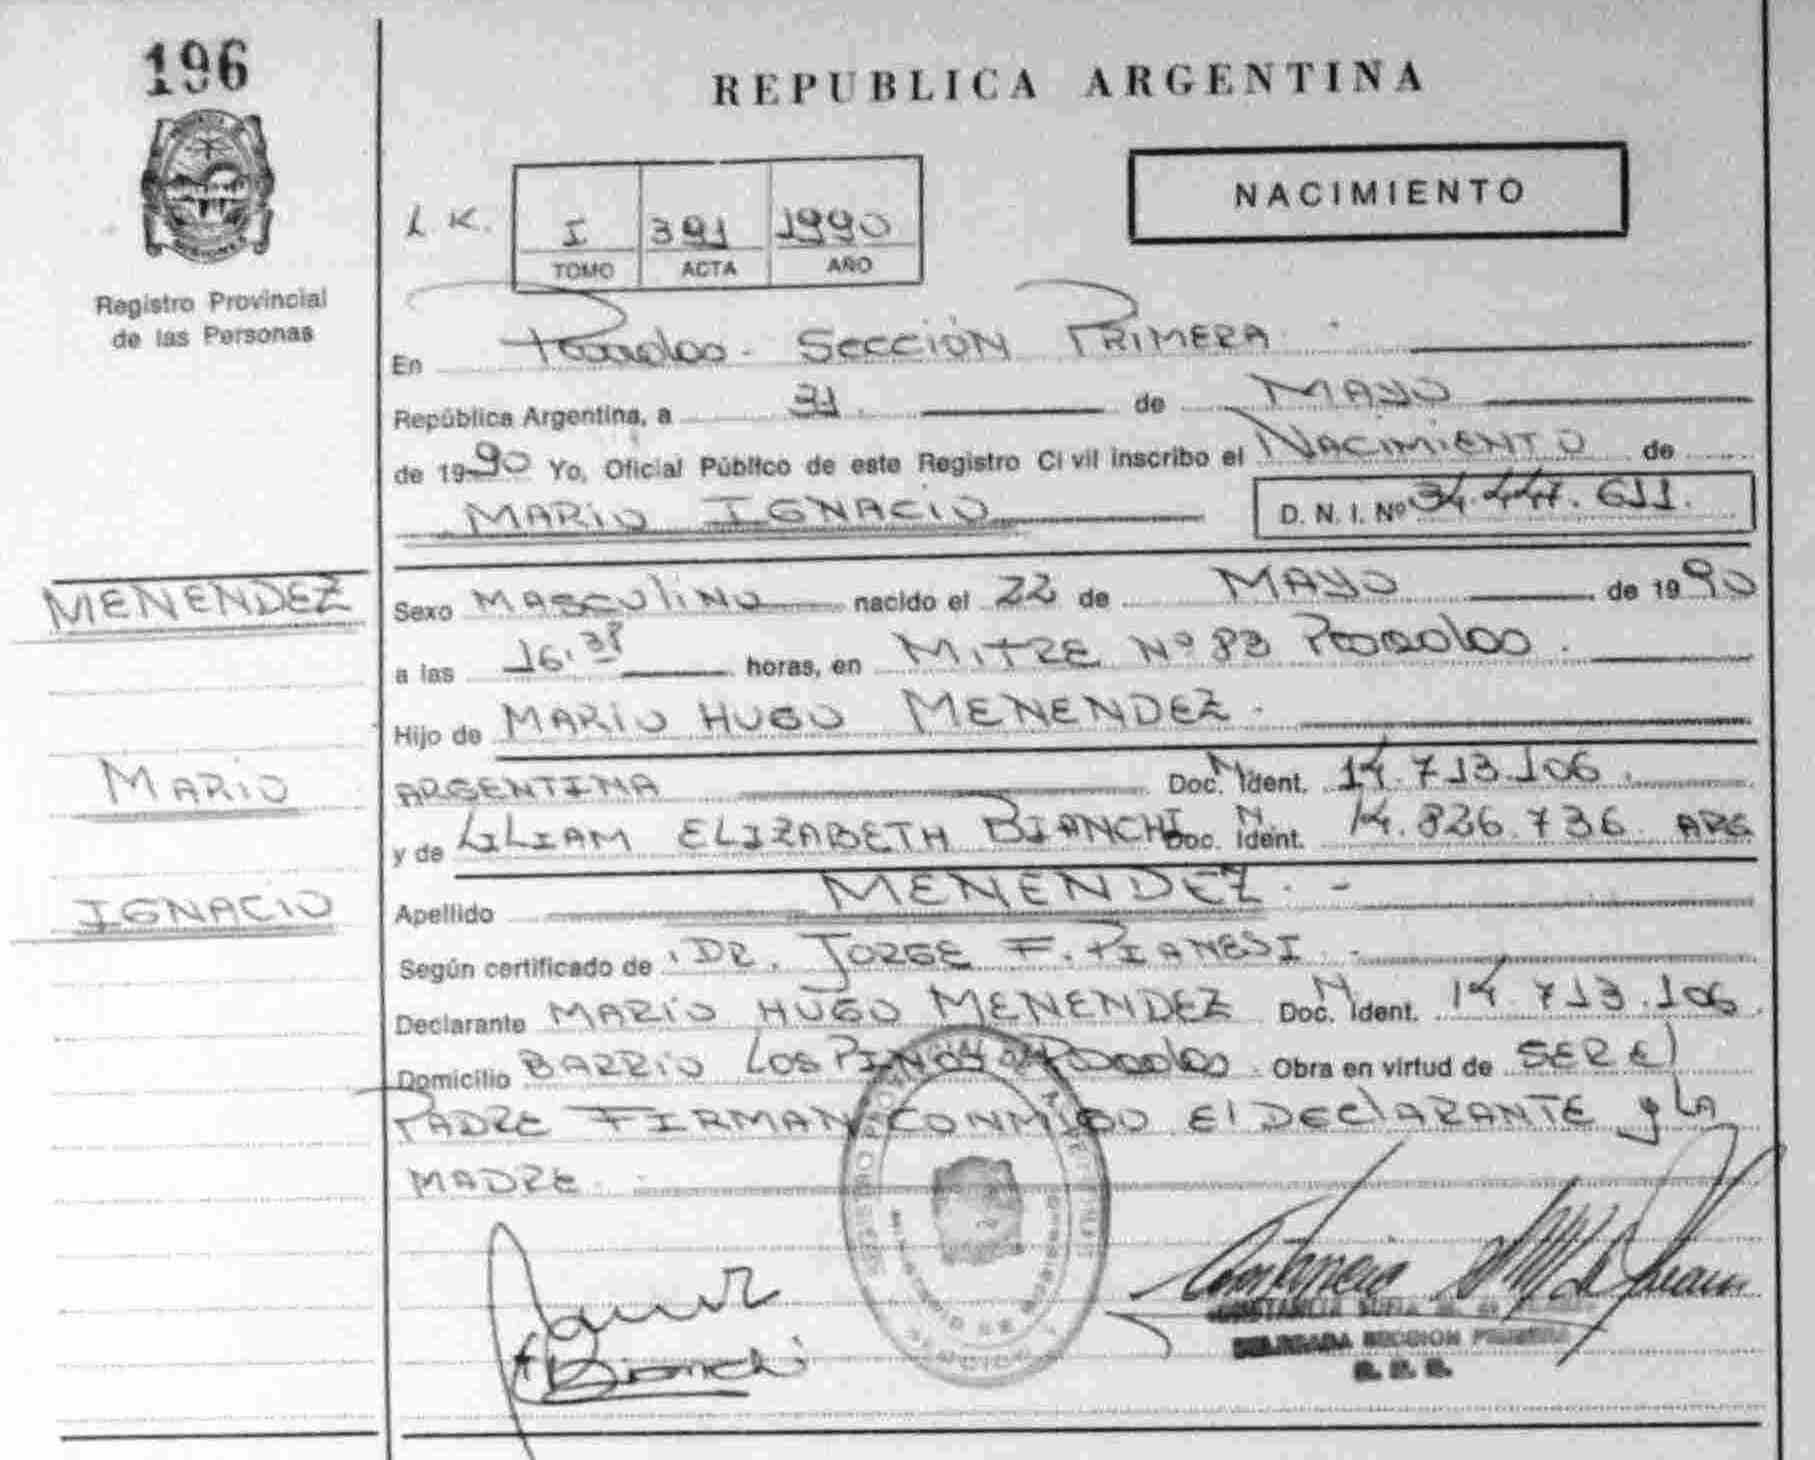 196
REPUBLICA ARGENTINA
NACIMIENTO
L. K.
I 391 1990
TOMO ACTA AÑO
Registro Provincial
de las Personas
En Posadas - SECCIÓN PRIMERA
República Argentina, a 31 de MAYO
de 1990 Yo, Oficial Público de este Registro Civil inscribo el NACIMIENTO de
MARIO IGNACIO D. N. I. Nº 34.447.611.
MENENDEZ
Sexo MASCULINO nacido el 22 de MAYO de 1990
a las 16.38 horas, en MITRE Nº 83 Posadas.
Hijo de MARIO HUGO MENENDEZ.
MARIO
ARGENTINA Doc. N. Ident. 14.713.106.
y de LILIAM ELIZABETH BIANCHI Doc. N. Ident. 14.826.736. ARG
IGNACIO
Apellido MENENDEZ. -
Según certificado de DR. JORGE F. PIANESI. -
Declarante MARIO HUGO MENENDEZ Doc. N. Ident. 14.713.106.
Domicilio BARRIO LOS PINOS Posadas. Obra en virtud de SER El
PADRE FIRMAN CONMIGO El DEClARANTE y LA
MADRE.
Bianchi
CONSTANCIA
DELEGADA SECCION PRIMERA